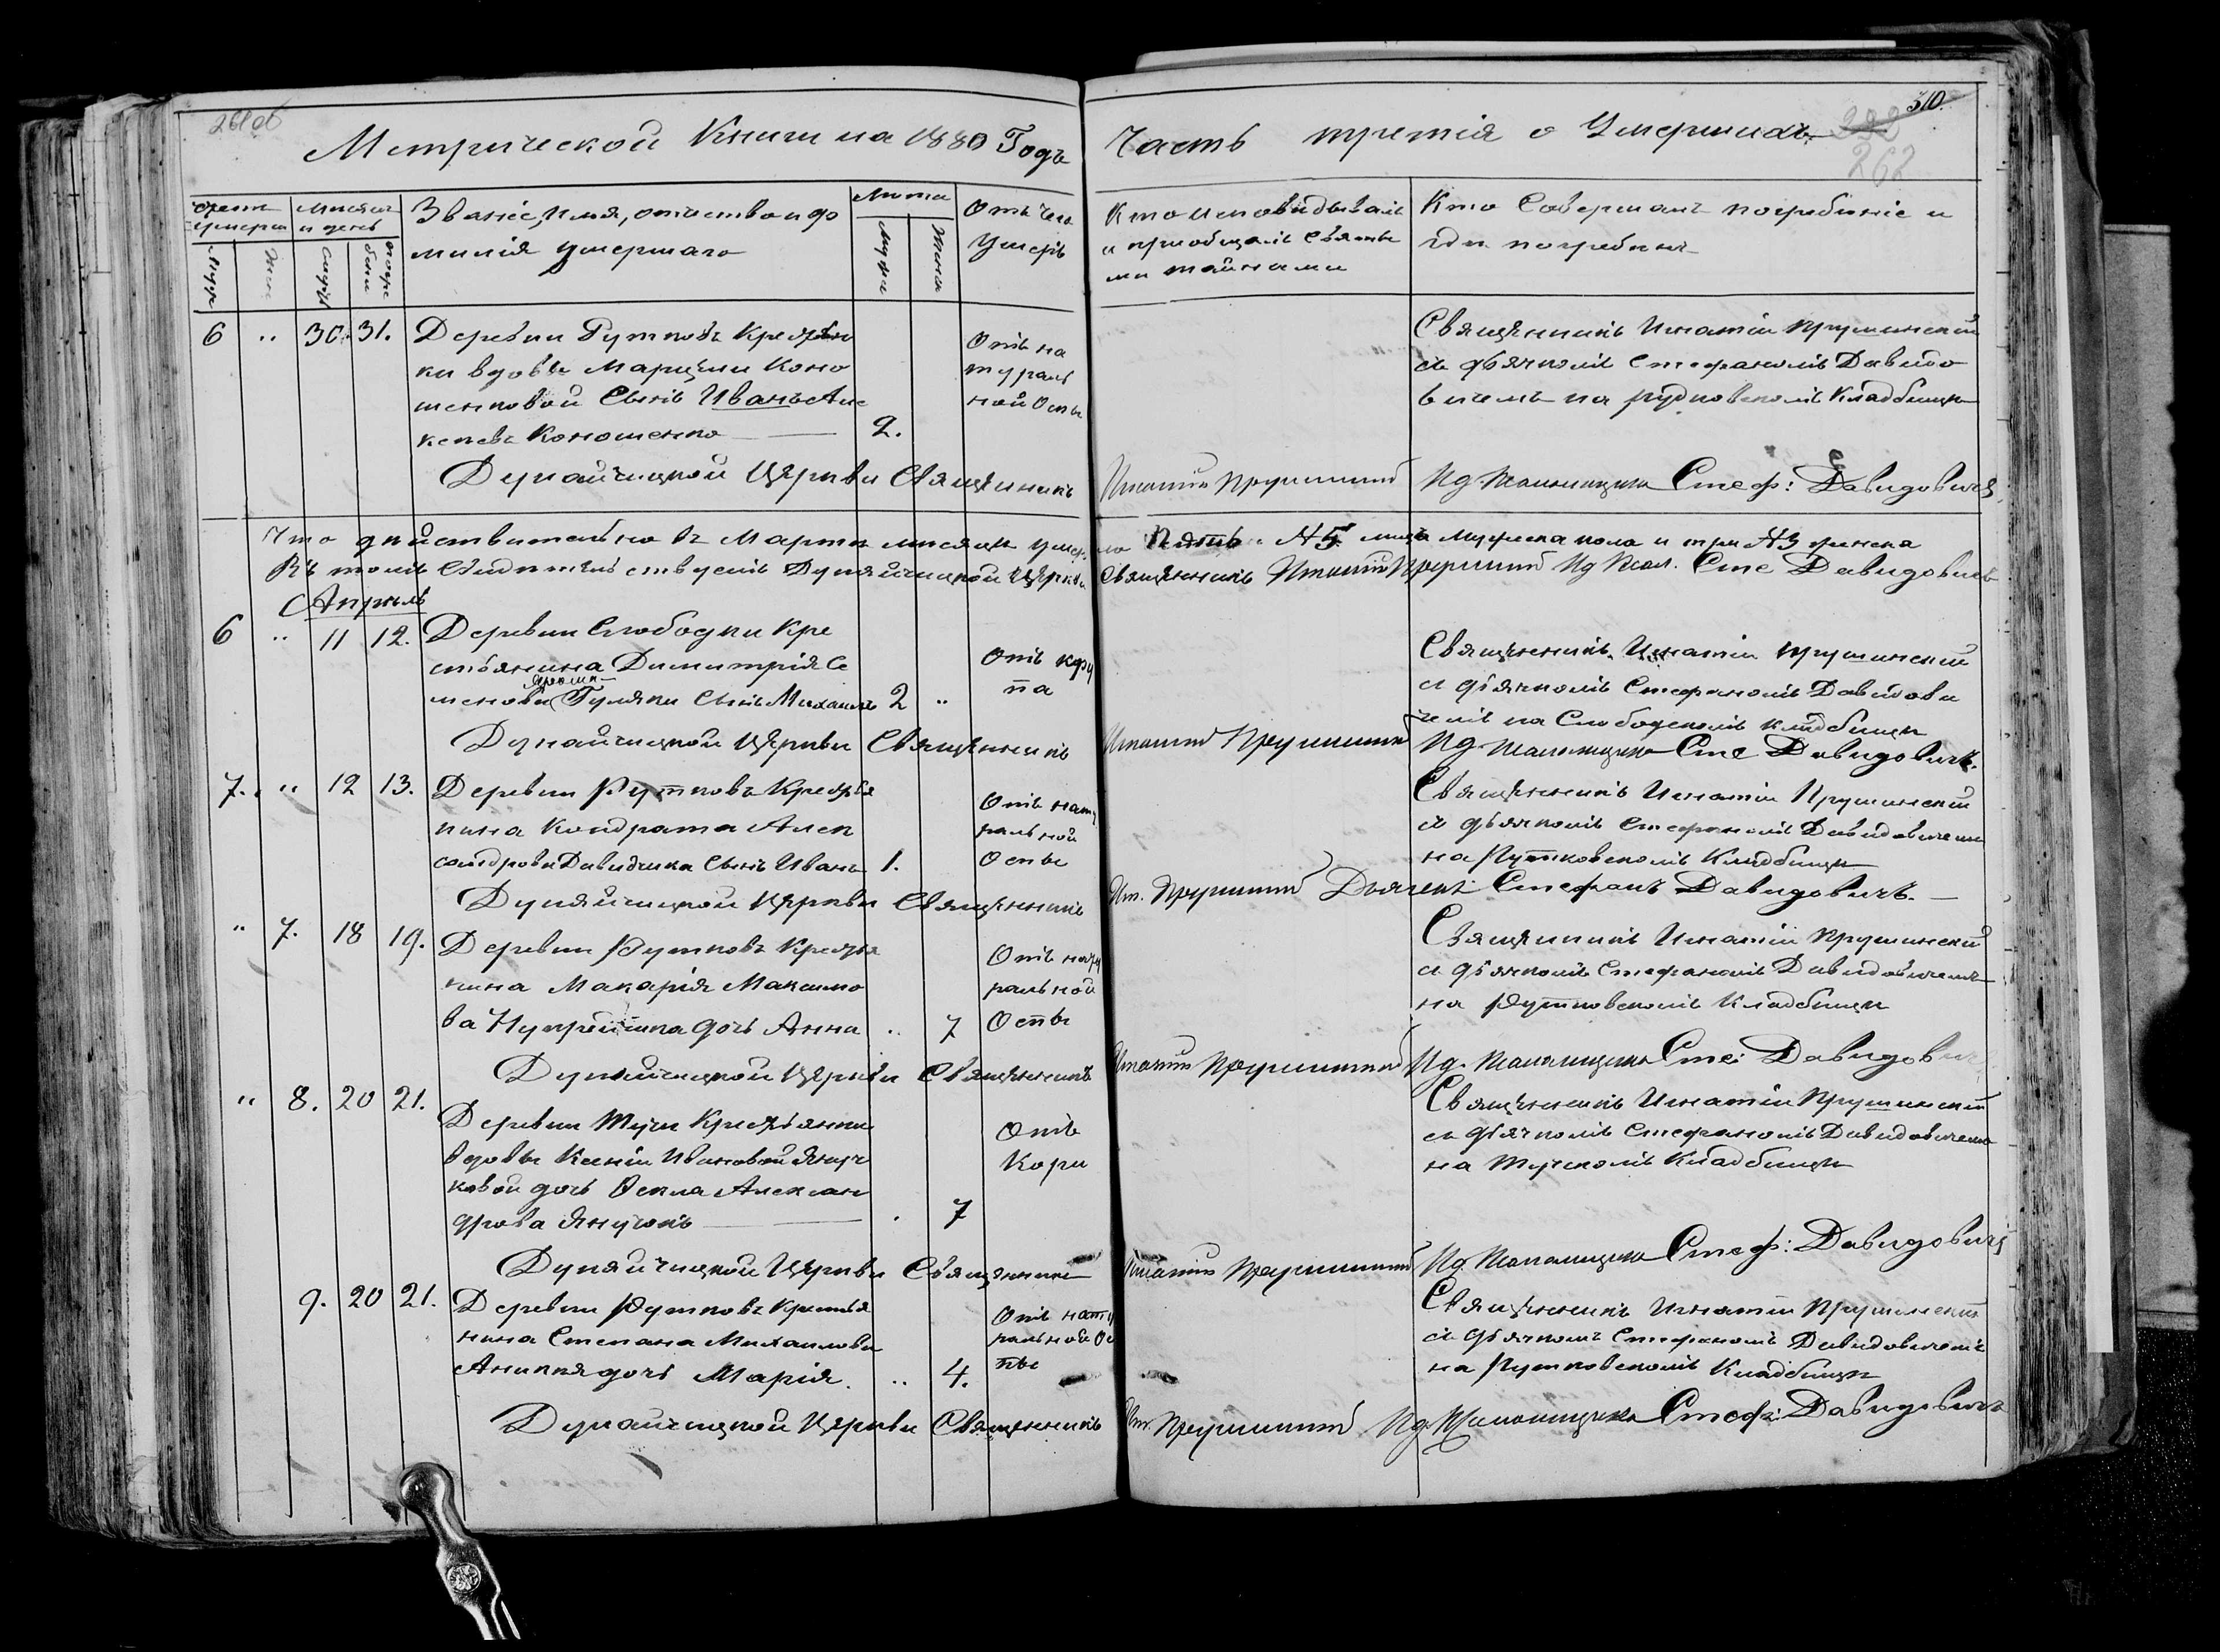 261об
310.
262
Метрической Книги на 1880 Годъ
Часть третія о Умершихъ
Мѣсяцъ и день
Званіе, Имя, отчество и фа
милія умершаго
Лѣта
Отъ чего
Умеръ
Кто исповѣдывалъ
и приобщалъ Святы
ми тайнами
Кто Совершалъ погребеніе и
гдѣ погребенъ
6 " 30. 31. Деревни Рутковъ Крестьян
ки вдовы Марціи Коно
шенковой Сынъ Иванъ Але
ксѣевъ Коношенко 2.
Отъ на
турал
ной Оспы
Священникъ Игнатій Прушинскій
съ дьячкомъ Стефаномъ Давидо
вичемъ на Кладбищѣ
Дунайчицкой Церкви Священникъ Игнатій Прушинскій Стеф: Давидовичъ
Что дѣйствительно въ Мартѣ мѣсяцѣ умерло Пять № 5. лицъ мужеска пола и три № 3 женска
Въ томъ свидѣтельствуемъ Дунайчицкой Церкви Священникъ Игнатій Прушинскій Сте Давидовичъ
Апрѣль
6 " 11 12. Деревни Слободки Кре
стьянина Димитрія Се
менова Гуляки Сынъ Михаилъ 2 "
Отъ кру
па
Священникъ Игнатій Прушинскій
съ дьячкомъ Стефаномъ Давидови
чемъ на Слободскомъ кладбищѣ
Дунайчицкой Церкви Священникъ Игнатій Прушинскій Сте Давидовичъ.
7. " 12 13. Деревни Рутковъ Крестья
нина Кондрата Алек
сандрова Давидчика Сынъ Иванъ 1.
Отъ нату
ральной
Оспы
Священникъ Игнатій Прушинскій
съ дьячкомъ Стефаномъ Давидовичемъ
на Рутковскомъ Кладбищѣ
Дунайчицкой Церкви Священникъ Иг. Прушинскій Дьячекъ Стефанъ Давидовичъ.
" 7. 18 19. Деревни Рутковъ Крестья
нина Макарія Максимо
ва дочь Анна " 7
Отъ нату
ральной
Оспы
Священникъ Игнатій Прушинскій
съ дьячкомъ Стефаномъ Давидовичемъ
на Рутковскомъ Кладбищѣ
Дунайчицкой Церкви Священникъ Игнатій Прушинскій Сте: Давидовичъ
" 8. 20 21. Деревни Тучи Крестьянки
вдовы Ксеніи Ивановой Януч
ковой дочь Фекла Алексан
дрова Янучокъ 7
Отъ
Кори
Священникъ Игнатій Прушинскій
съ дьячкомъ Стефаномъ Давидовичемъ
на Тучскомъ Кладбищѣ
Дунайчицкой Церкви Священникъ Игнатій Прушинскій Стеф: Давидовичъ
9. 20 21. Деревни Рутковъ Крестья
нина Степана Михаилова
дочь Марія. " 4.
Отъ нату
ральной Ос
пы
Священникъ Игнатій Прушинскій
съ дьячкомъ Стефаномъ Давидовичемъ
на Рутковскомъ Кладбищѣ
Дунайчицкой Церкви Священникъ Иг. Прушинскій Стеф: Давидовичъ